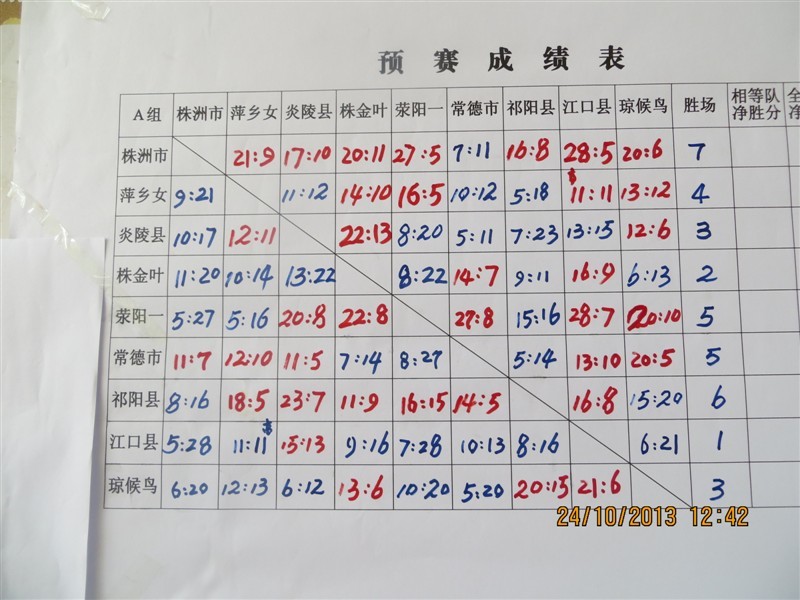 预赛成绩表
A组 株洲市 萍乡女 炎陵县 株金叶 荥阳一 常德市 祁阳县 江口县 琼候鸟 胜场 相等队净胜分
株洲市 21:9 17:10 20:11 27:5 7:11 16:8 28:5 20:6 7
萍乡女 9:21 11:12 14:10 16:5 10:12 5:18 11:11 13:12 4
炎陵县 10:17 12:11 22:13 8:20 5:11 7:23 13:15 12:6 3
株金叶 11:20 10:14 13:22 8:22 14:7 9:11 16:9 6:13 2
荥阳一 5:27 5:16 20:8 22:8 27:8 15:16 28:7 20:10 5
常德市 11:7 12:10 11:5 7:14 8:27 5:14 13:10 20:5 5
祁阳县 8:16 18:5 23:7 11:9 16:15 14:5 16:8 15:20 6
江口县 5:28 11:11 15:13 9:16 7:28 10:13 8:16 6:21 1
琼候鸟 6:20 12:13 6:12 13:6 10:20 5:20 20:15 21:6 3
24/10/2013 12:42